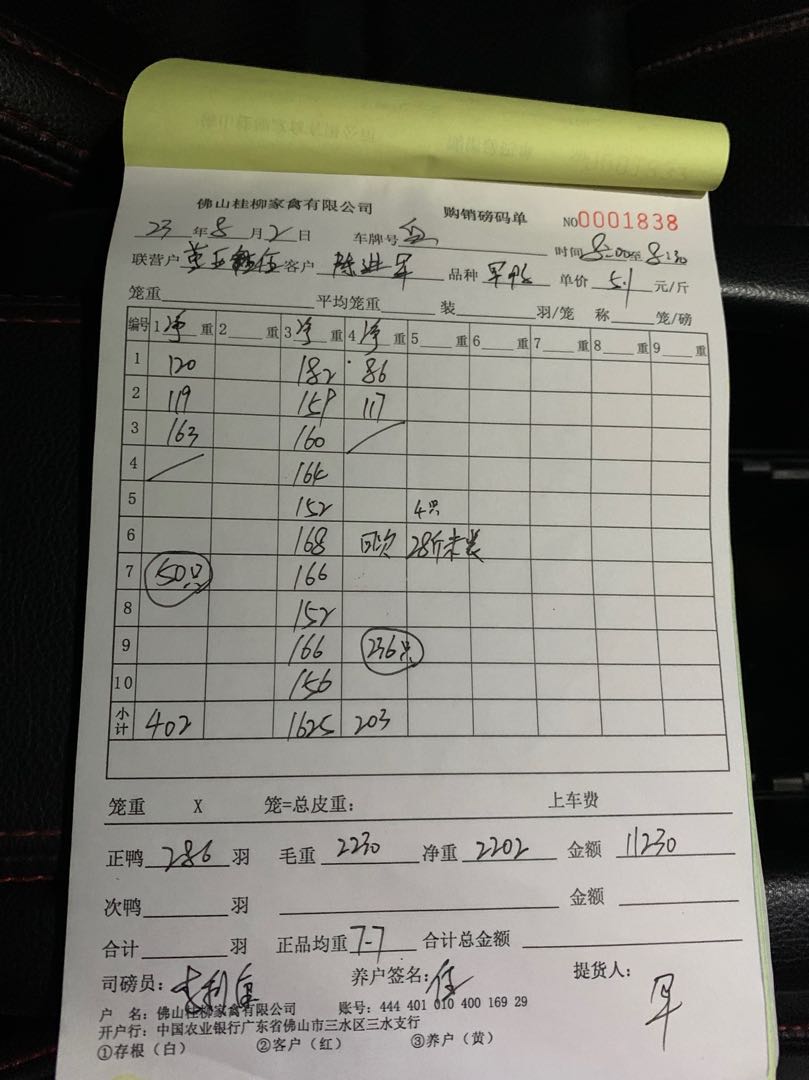 佛山桂柳家禽有限公司 购销磅码单 NO0001838
23年8月2日 车牌号 时间8:00至8:30
联营户 客户 陈进军 品种 单价 5.1 元/斤
笼重 平均笼重 装 羽/笼 称 笼/磅
编号 1净重 2 重 3净重 4净重 5 重 6 重 7 重 8 重 9 重
1 120 182 86
2 119 159 117
3 163 160
4 164
5 152 4只
6 168 28斤未装
7 50只 166
8 152
9 166 236只
10 156
小计 402 1625 203
笼重 X 笼=总皮重: 上车费
正鸭 286 羽 毛重 2230 净重 2202 金额 11230
次鸭 羽 金额
合计 羽 正品均重 7-7 合计总金额
司磅员: 养户签名: 提货人:
军
户 名: 佛山桂柳家禽有限公司 账号: 444 401 010 400 169 29
开户行: 中国农业银行广东省佛山市三水区三水支行
①存根(白) ②客户(红) ③养户(黄)